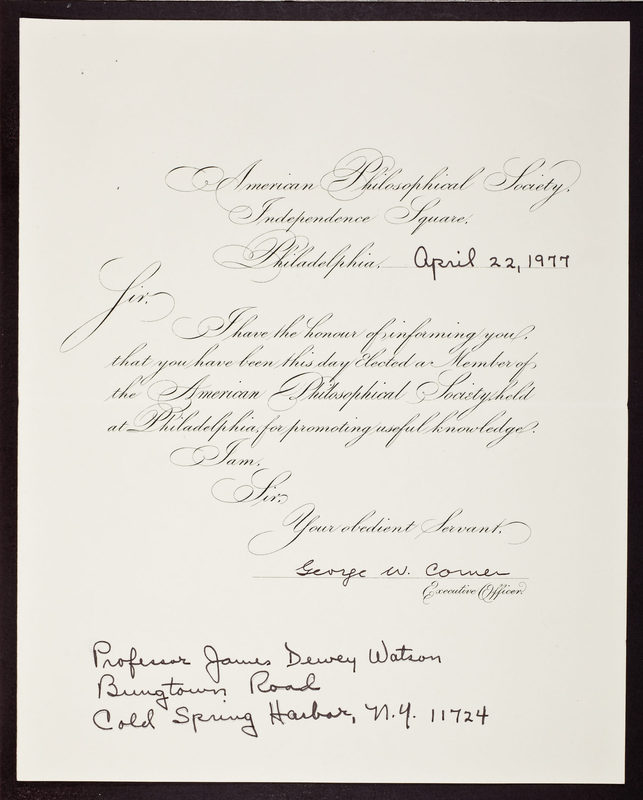 American Philosophical Society.
Independence Square.
Philadelphia. April 22, 1977
Sir.
I have the honour of informing you,
that you have been this day Elected a Member of
the American Philosophical Society, held
at Philadelphia, for promoting useful knowledge.
I am,
Sir,
Your obedient Servant.
George W. Corner
Executive Officer.
Professor James Dewey Watson
Bungtown Road
Cold Spring Harbor, N.Y. 11724